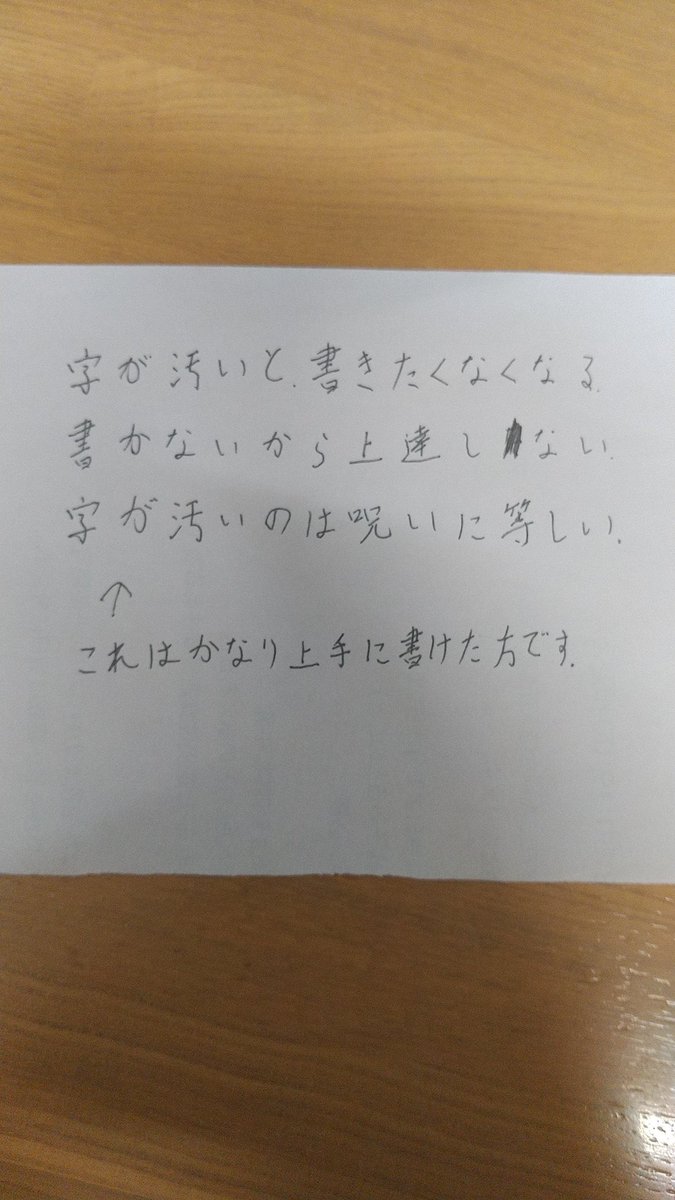 字が汚いと、書きたくなくなる。
書かないから上達しない。
字が汚いのは呪いに等しい。
↑
これはかなり上手に書けた方です。